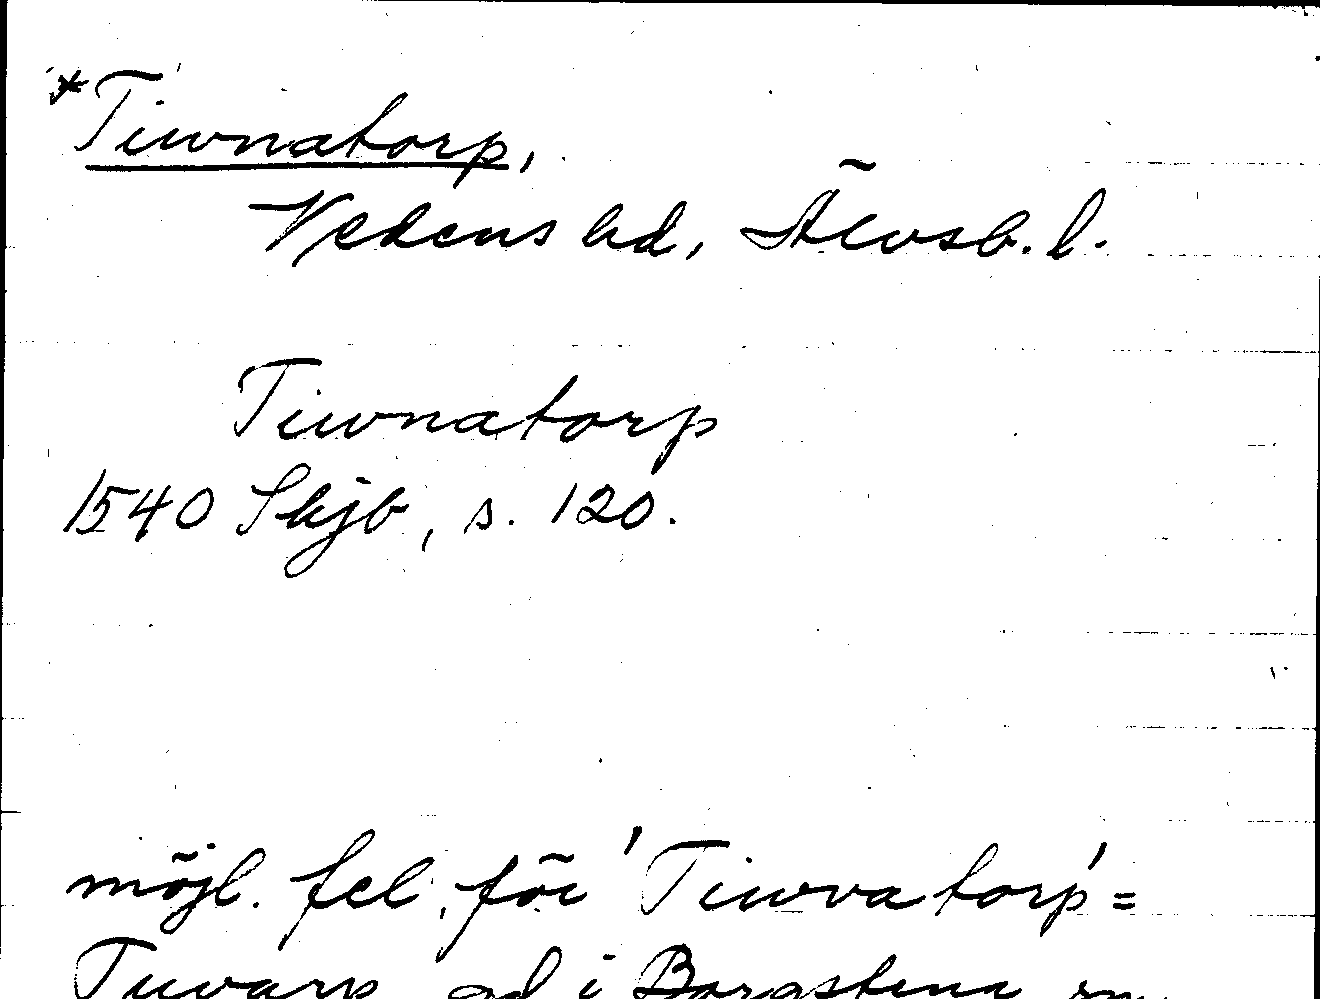 *Tiwnatorp,
Vedens hd, Älvsb. l.
Tiwnatorp
1540 Skjb, s. 120.
möjl. fel för 'Tiwvatorp' =
Tuvarp, gd i Borgstena sn